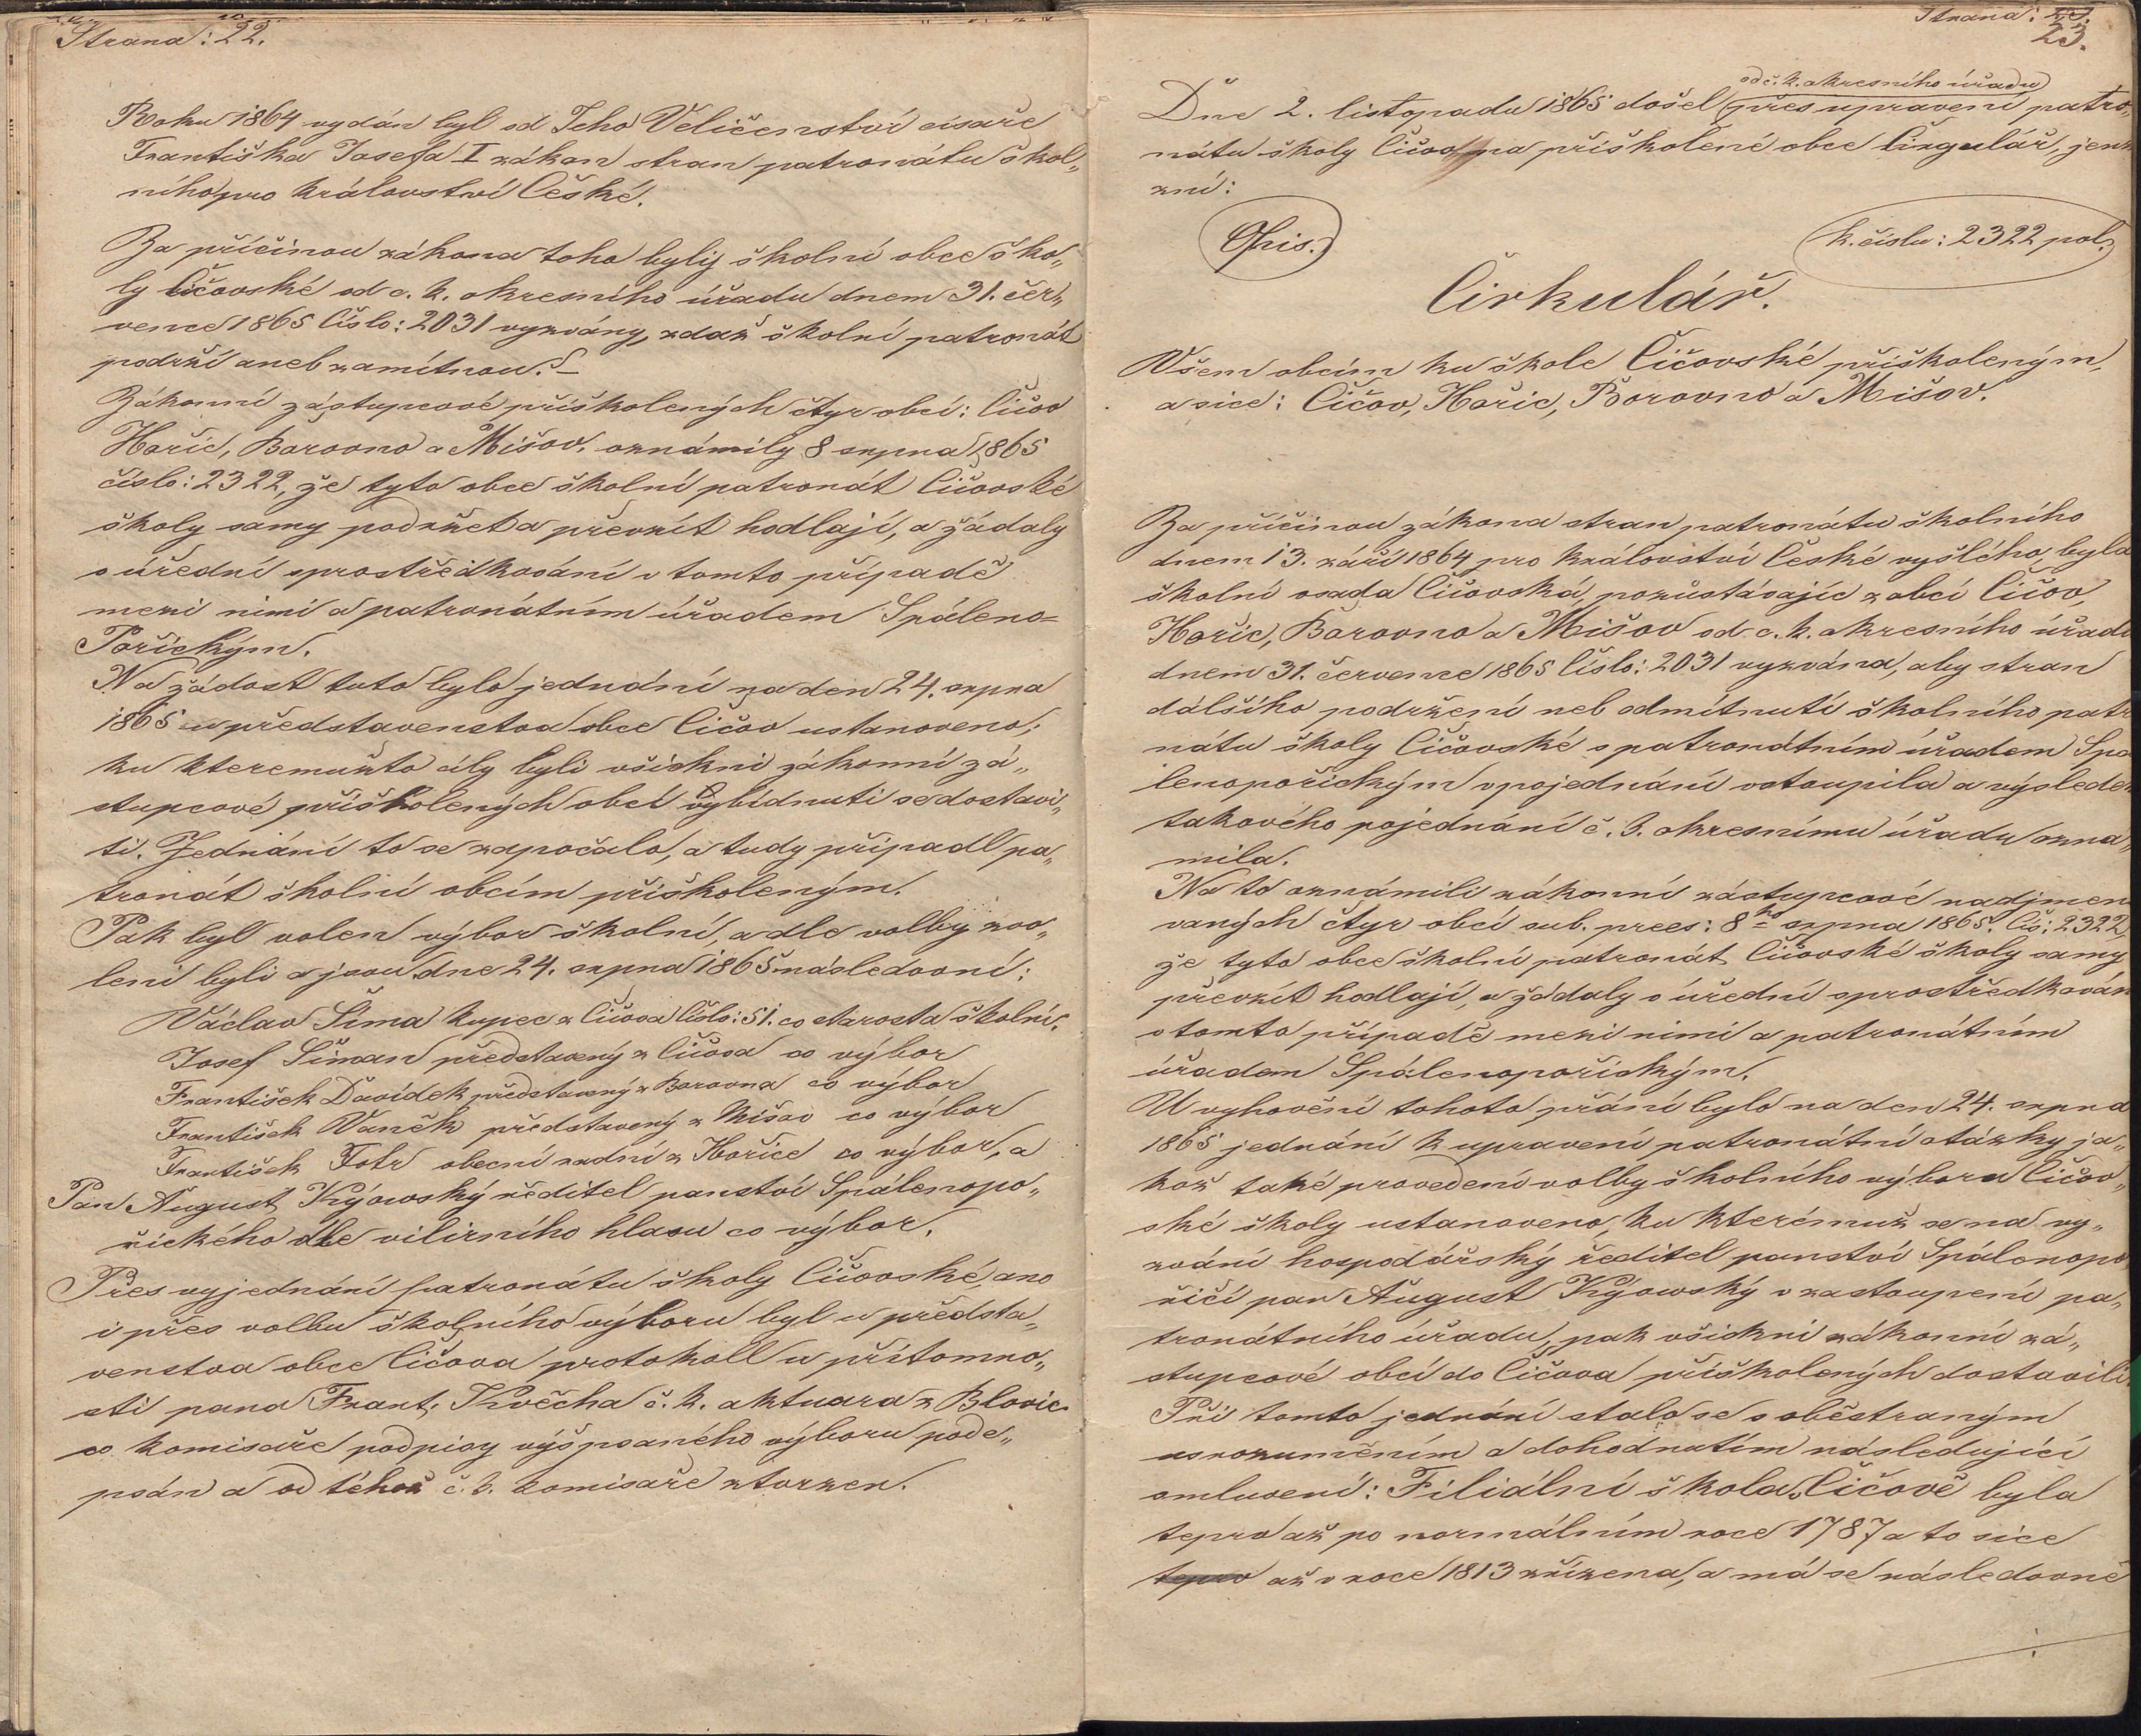 Strana: 22.
Roku 1864 vydán byl od Jeho Veličenství císaře
Františka Josefa I zákon stran patronátu škol„
ního pro království České.
Za příčinou zákona toho byly školní obce ško„
ly Čičovské od c. k. okresního úřadu dnem 31. čer„
vence 1865 Číslo: 2031 vyzvány, zdaž školní patronát
podrží aneb zamítnou. –
Zákonní zástupcové přiškolených čtyr obcí: Čičov
Hořic, Borovno a Mišov. oznámily 8 srpna 1865
číslo: 2322, že tyto obce školní patronát Čičovské
školy samy podržet a převzít hodlají, a žádaly
o úřední sprostředkování v tomto případě
mezi nimi a patronátním úřadem Spáleno=
Poříckým.
Na žádost tuto bylo jednání na den 24. srpna
1865 u představenstva obce Čičov ustanoveno;
ku kteremužto cíly byli všickni zákonní zá„
stupcové přiškolených obcí vybídnuti se dostavi„
ti. Jednání to se započalo, a tudy připadl pa„
tronát školní obcím přiškoleným.
Pak byl volen výbor školní, a dle volby zvo„
leni byli a jsou dne 24. srpna 1865 následovní:
Václav Šíma kupec z Čičova Číslo: 51. co starosta školní.
Josef Šiman představený z Čičova co výbor
František Davídek představený z Borovna co výbor
František Vaněk představený z Mišov co výbor
František Fotr obecní radní z Hořice co výbor, a
Pan August Kýowský ředitel panství Spálenopo„
řického dle vilirního hlasu co výbor.
Přes vyjednání patronátu školy Čičovské, ano
i přes volbu školního výboru byl u předsta„
venstva obce Čičova protokoll u přítomno„
sti pana Frant. Kvěcha c. k. aktuara z Blovic
co komisaře podpisy výšpsaného výboru pode„
psán a od téhož c. k. komisaře stvrzen.
Strana: 23.
23.
od c. k. okresního úřadu
Dne 2. listopadu 1865 došel přes upravení patro„
nátu školy Čičov na přiškolené obce Cirgulář, jenž
zní:
Opis.
k. číslu: 2322 pol.
Čirkulář.
Všem obcím ku škole Čičovské přiškoleným,
a sice: Čičov, Hořic, Borovno a Mišov.
Za příčinou zákona stran patronátu školního
dnem 13. září 1864 pro království České vyšlého, byla
školní osada Čičovská, pozůstávajíc z obcí Čičov,
Hořic, Borovno a Mišov od c. k. okresního úřadu
dnem 31. července 1865 Číslo: 2031 vyzvána, aby stran
dálšího podržení neb odmítnutí školního patr
nátu školy Čičovské s patronátním úřadem Spa
lenopořickým v pojednání vstoupila a výsledek
takového pojednání c. k. okresnímu úřadu ozna„
mila.
Na to oznámili zákonní zástupcové nadjmen
vaných čtyr obcí sub. prees: 8ho srpna 1865. Čís: 2322,
že tyto obce školní patronát Čičovské školy samy
převzít hodlají, a žádaly o úřední sprostředkován
v tomto případě mezi nimi a patronátním
úřadem Spálenopořickým.
U vyhovění tohoto přání bylo na den 24. srpna
1865 jednání k upravení patronátní otázky ja„
kož také provedení volby školního výboru Čičov„
ské školy ustanoveno, ku kterémuž se na vy„
zvání hospodářský ředitel panství Spálenopo
řičí pan August Kýowský v zastoupení pa„
tronátního úřadu, pak všickni zákonní zá„
stupcové obcí do Čičova přiškolených dostavili
Při tomto jednání stalo se s oběstraným
usrozuměním a dohodnutím následující
omluvení: Filiální škola v Čičově byla
teprv až po normálním roce 1787 a to sice
teprv až v roce 1813 zřízena, a má se následovně